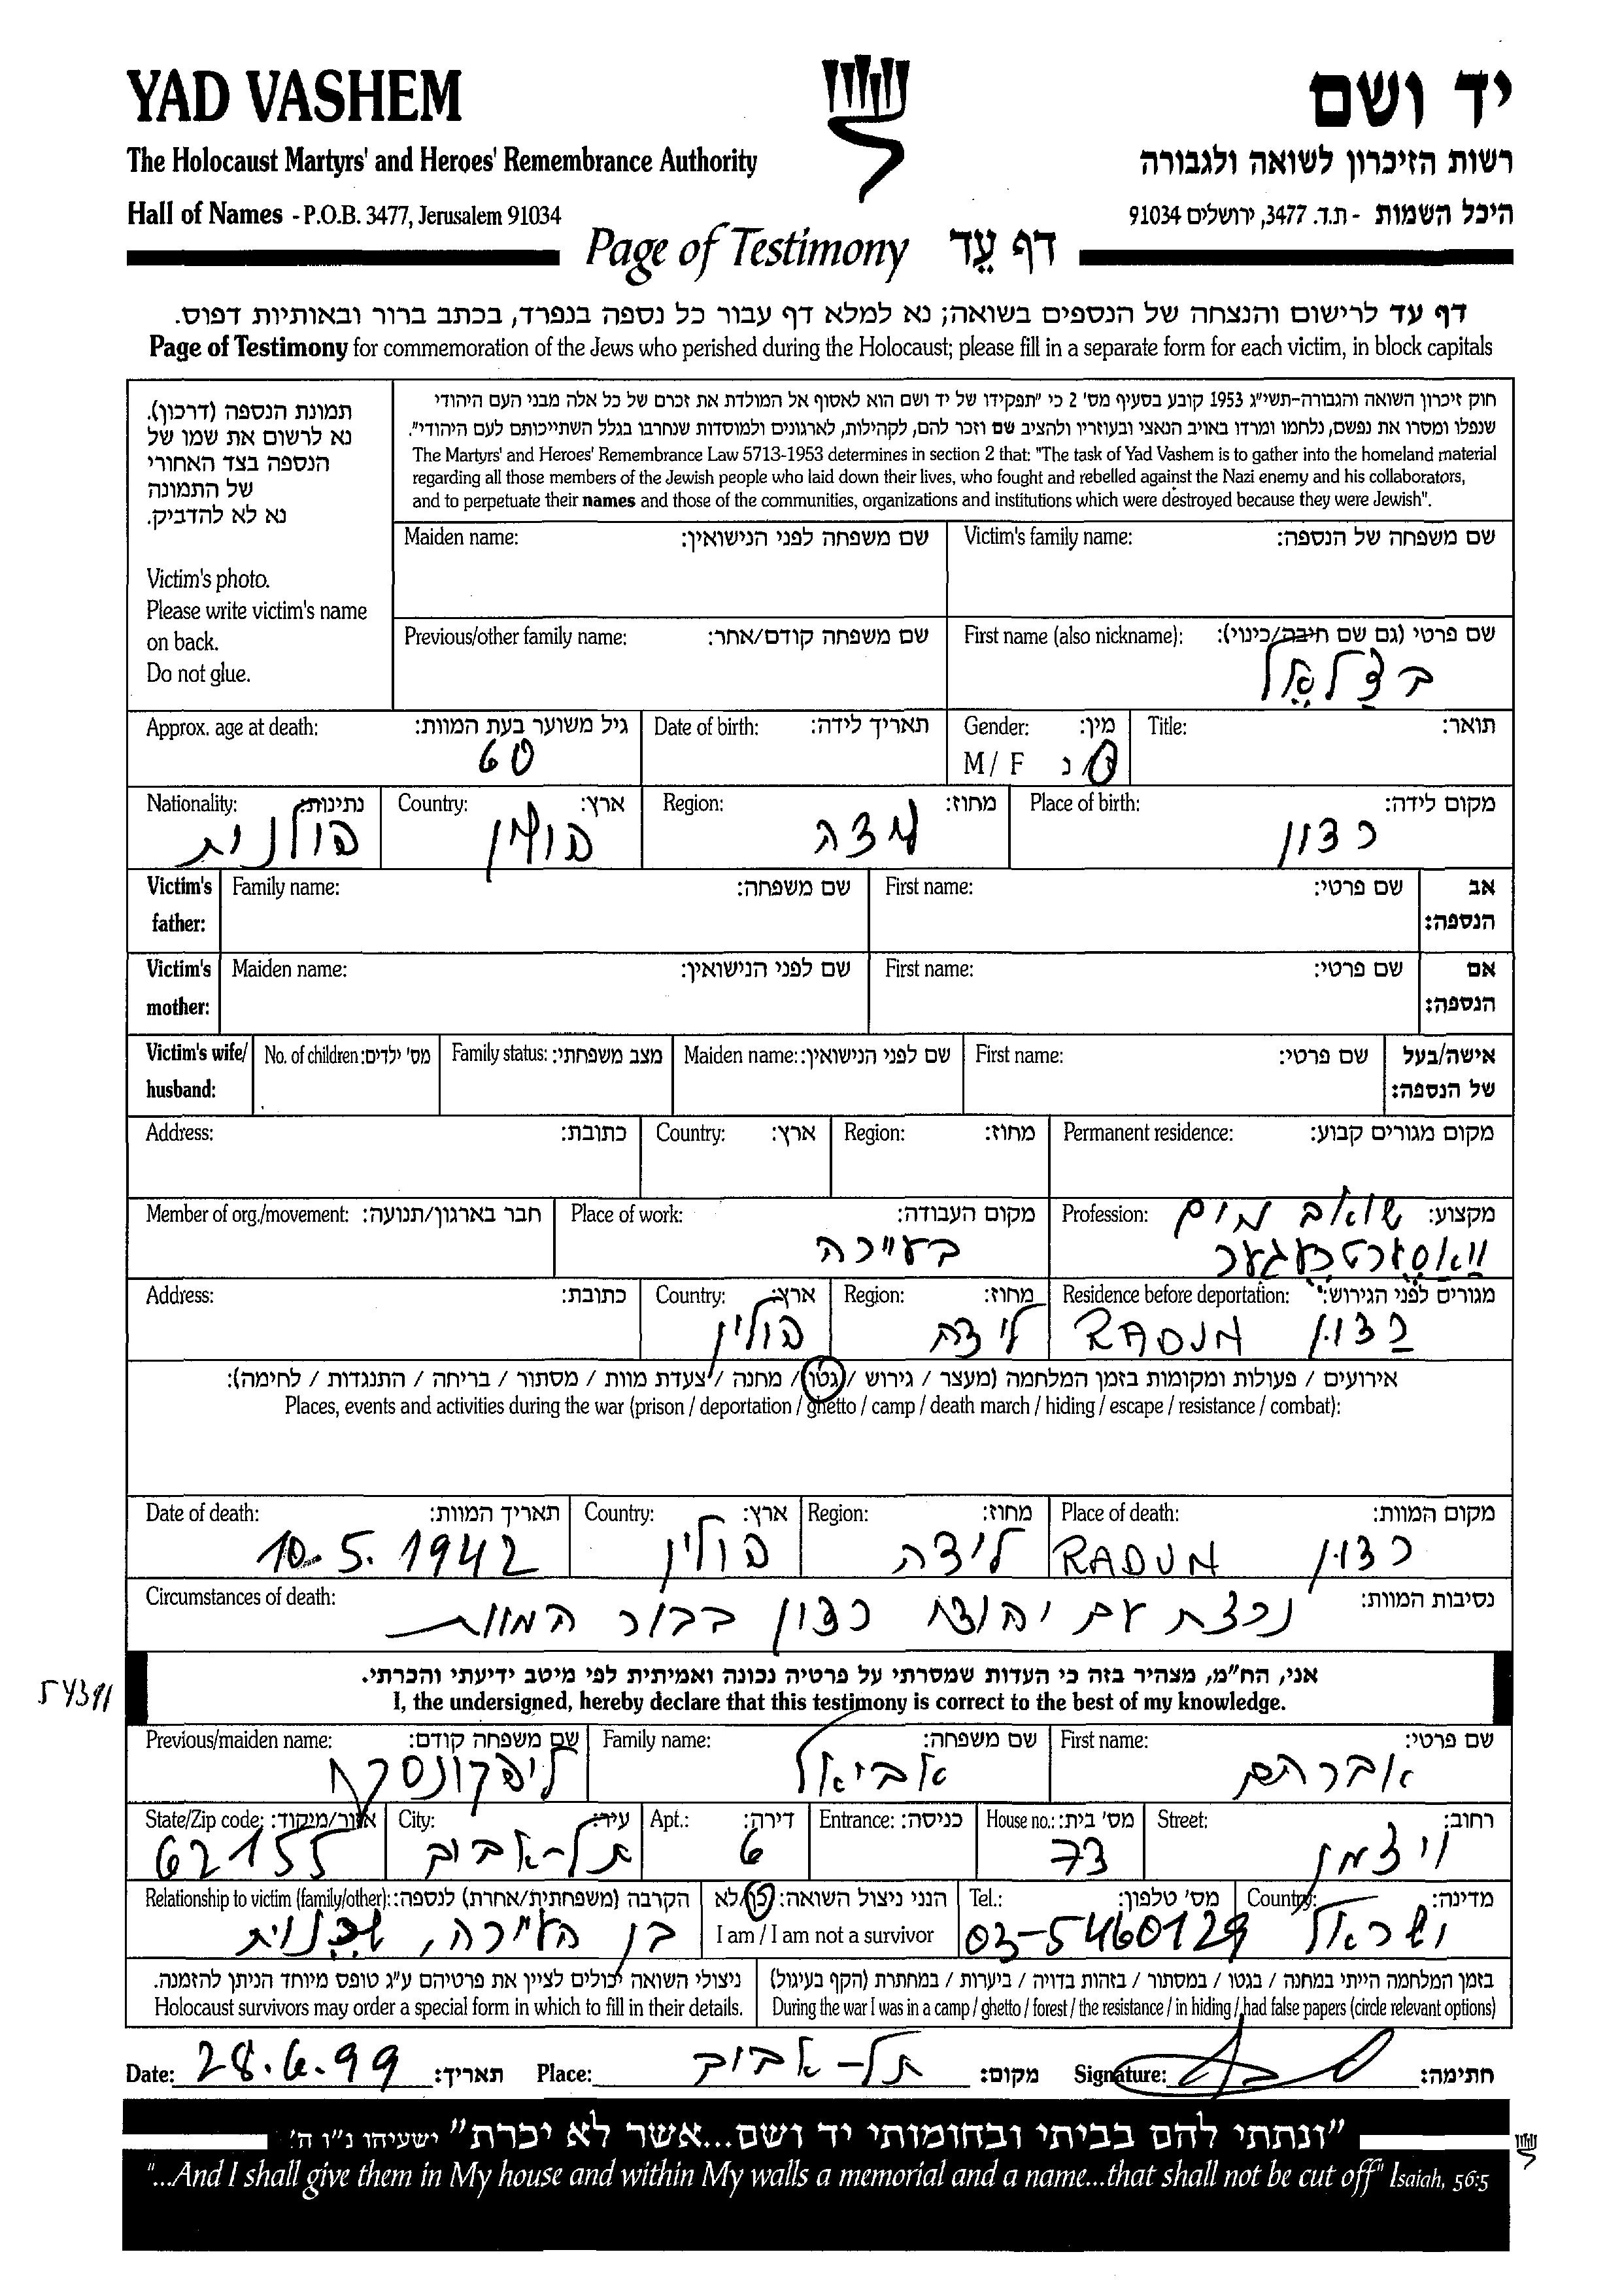 YAD VASHEM
יד ושם
The Holocaust Martyrs' and Heroes' Remembrance Authority
רשות הזיכרון לשואה ולגבורה
Hall of Names - P.O.B. 3477, Jerusalem 91034
היכל השמות - ת.ד. 3477, ירושלים 91034
Page of Testimony דף עֵד
דף עד לרישום והנצחה של הנספים בשואה; נא למלא דף עבור כל נספה בנפרד, בכתב ברור ובאותיות דפוס.
Page of Testimony for commemoration of the Jews who perished during the Holocaust; please fill in a separate form for each victim, in block capitals
תמונת הנספה (דרכון).
נא לרשום את שמו של
הנספה בצד האחורי
של התמונה
נא לא להדביק.
Victim's photo.
Please write victim's name
on back.
Do not glue.
חוק זיכרון השואה והגבורה-תשי"ג 1953 קובע בסעיף מס' 2 כי "תפקידו של יד ושם הוא לאסוף אל המולדת את זכרם של כל אלה מבני העם היהודי
שנפלו ומסרו את נפשם, נלחמו ומרדו באויב הנאצי ובעוזריו ולהציב שם וזכר להם, לקהילות, לארגונים ולמוסדות שנחרבו בגלל השתייכותם לעם היהודי".
The Martyrs' and Heroes' Remembrance Law 5713-1953 determines in section 2 that: "The task of Yad Vashem is to gather into the homeland material
regarding all those members of the Jewish people who laid down their lives, who fought and rebelled against the Nazi enemy and his collaborators,
and to perpetuate their names and those of the communities, organizations and institutions which were destroyed because they were Jewish".
Victim's family name: שם משפחה של הנספה:
Maiden name: שם משפחה לפני הנישואין:
First name (also nickname): שם פרטי (גם שם חיבה/כינוי):
בצלאל
Previous/other family name: שם משפחה קודם/אחר:
Title: תואר:
Gender: מין:
M / F ז/נ
Date of birth: תאריך לידה:
Approx. age at death: גיל משוער בעת המוות:
60
Place of birth: מקום לידה:
רדון
Region: מחוז:
לידה
Country: ארץ:
פולין
Nationality: נתינות:
פולנית
Victim's father: אב הנספה:
First name: שם פרטי:
Family name: שם משפחה:
Victim's mother: אם הנספה:
First name: שם פרטי:
Maiden name: שם לפני הנישואין:
Victim's wife/ husband: אישה/בעל של הנספה:
First name: שם פרטי:
Maiden name: שם לפני הנישואין:
Family status: מצב משפחתי:
No. of children: מס' ילדים:
Permanent residence: מקום מגורים קבוע:
Region: מחוז:
Country: ארץ:
Address: כתובת:
Profession: מקצוע: שואב מים
וואסערטרעגער
Place of work: מקום העבודה:
בעיירה
Member of org./movement: חבר בארגון/תנועה:
Residence before deportation: מגורים לפני הגירוש:
רדון RADUN
Region: מחוז:
לידה
Country: ארץ:
פולין
Address: כתובת:
אירועים / פעולות ומקומות בזמן המלחמה (מעצר / גירוש / גטו / מחנה / צעדת מוות / מסתור / בריחה / התנגדות / לחימה):
Places, events and activities during the war (prison / deportation / ghetto / camp / death march / hiding / escape / resistance / combat):
Place of death: מקום המוות:
רדון RADUN
Region: מחוז:
לידה
Country: ארץ:
פולין
Date of death: תאריך המוות:
10.5.1942
Circumstances of death: נסיבות המוות:
נרצח עם יהודי רדון בבור המוות
אני, הח"מ, מצהיר בזה כי העדות שמסרתי על פרטיה נכונה ואמיתית לפי מיטב ידיעתי והכרתי.
I, the undersigned, hereby declare that this testimony is correct to the best of my knowledge.
54391
First name: שם פרטי:
אברהם
Family name: שם משפחה:
אביאל
Previous/maiden name: שם משפחה קודם:
ליפקונסקי
Street: רחוב:
ויצמן
House no.: מס' בית:
73
Entrance: כניסה:
Apt.: דירה:
6
City: עיר:
תל-אביב
State/Zip code: אזור/מיקוד:
62155
Country: מדינה:
ישראל
Tel.: מס' טלפון:
03-5460129
הנני ניצול השואה: כן/לא
I am / I am not a survivor
Relationship to victim (family/other): הקרבה (משפחתית/אחרת) לנספה:
בן העיירה, שכנות
בזמן המלחמה הייתי במחנה / בגטו / במסתור / בזהות בדויה / ביערות / במחתרת (הקף בעיגול)
During the war I was in a camp / ghetto / forest / the resistance / in hiding / had false papers (circle relevant options)
ניצולי השואה יכולים לציין את פרטיהם ע"ג טופס מיוחד הניתן להזמנה.
Holocaust survivors may order a special form in which to fill in their details.
Date: 28.6.99 תאריך:
Place: תל-אביב מקום:
Signature: חתימה:
"ונתתי להם בביתי ובחומותי יד ושם...אשר לא יכרת" ישעיהו נ"ו ה'
"...And I shall give them in My house and within My walls a memorial and a name...that shall not be cut off" Isaiah, 56:5